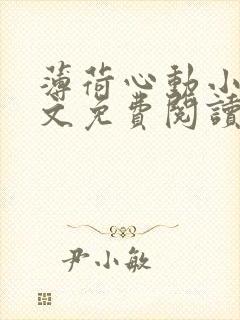 薄荷心動小
文免費閱讀
尹小敏